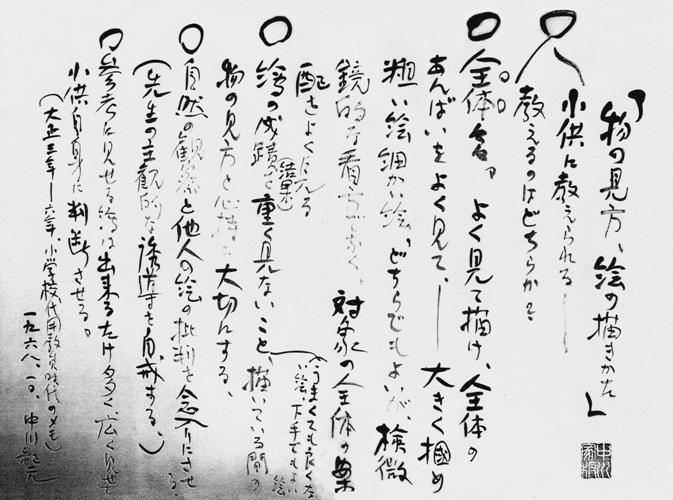 「物の見方、絵の描きかた」
小供に教えられる―
教えるのはどちらか?
全体を。よく見て描け、全体の
あんばいをよく見て、―大きく掴め
粗い絵細かい絵、どちらでもよいが、検微
鏡的な看方でなく、対象の全体の気
配をよく見る
絵の成蹟(結果)を重く見ないこと、描いている間の
(うまくても良くない絵、下手でもよい絵
物の見方と心持を大切にする、
自然の観察と他人の絵の批判を念入りにさせる。
(先生の主観的な誘導を自戒する。)
参考に見せる絵は出来るだけ多く、広く見せて
小供自身に判断させる。
(大正三年―六年、小学校代用教員時代のメモ)
一九六八、一〇、中川紀元